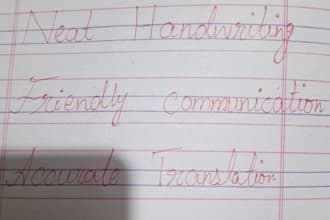 Neat Handwriting
Friendly communication
Accurate Translation